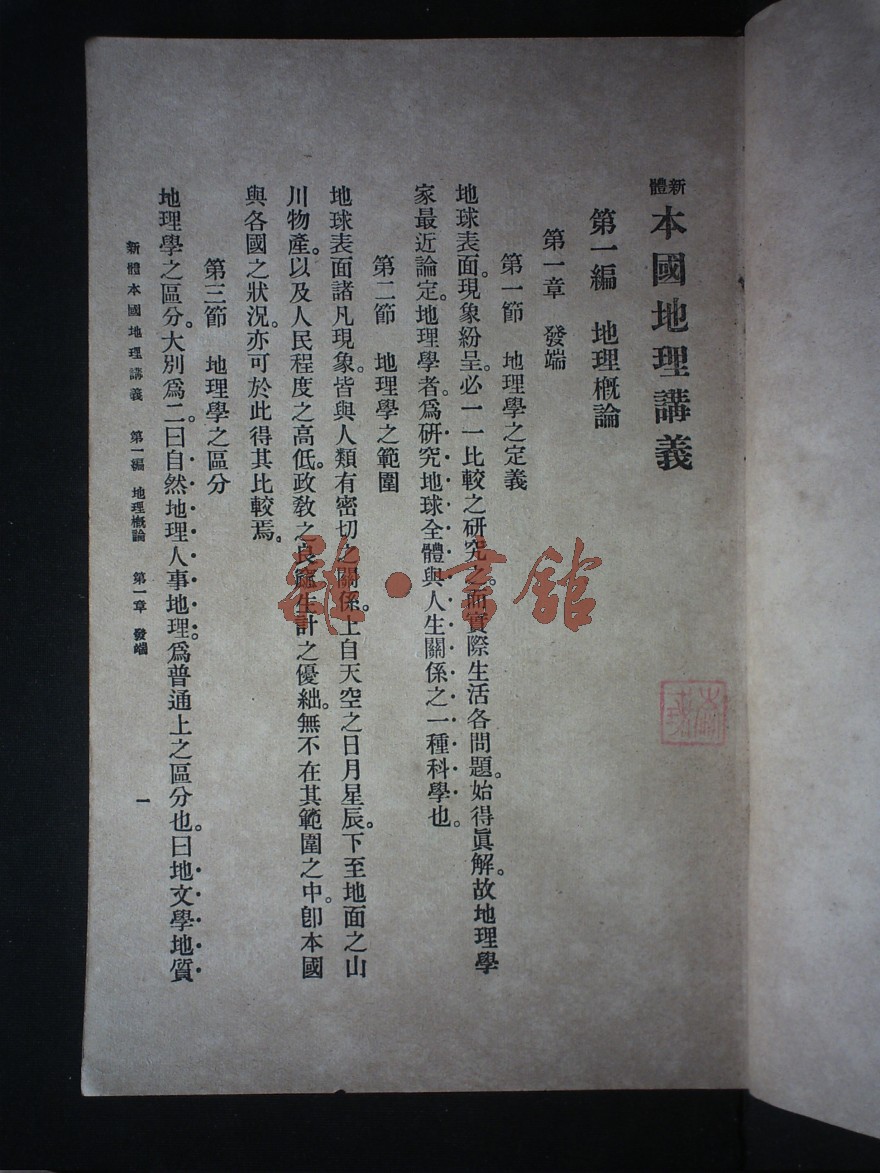 新體本國地理講義
第一編　地理概論
第一章　發端
第一節　地理學之定義
地球表面。現象紛呈。必一一比較之研究之。而實際生活各問題。始得眞解。故地理學
家最近論定。地理學者。爲研究地球全體與人生關係之一種科學也。
第二節　地理學之範圍
地球表面諸凡現象。皆與人類有密切之關係。上自天空之日月星辰。下至地面之山
川物產。以及人民程度之高低。政敎之良窳。生計之優絀。無不在其範圍之中。卽本國
與各國之狀況。亦可於此得其比較焉。
第三節　地理學之區分
地理學之區分。大別爲二。曰自然地理人事地理。爲普通上之區分也。曰地文學地質
新體本國地理講義　第一編　地理概論　第一章　發端
一
雜·書館